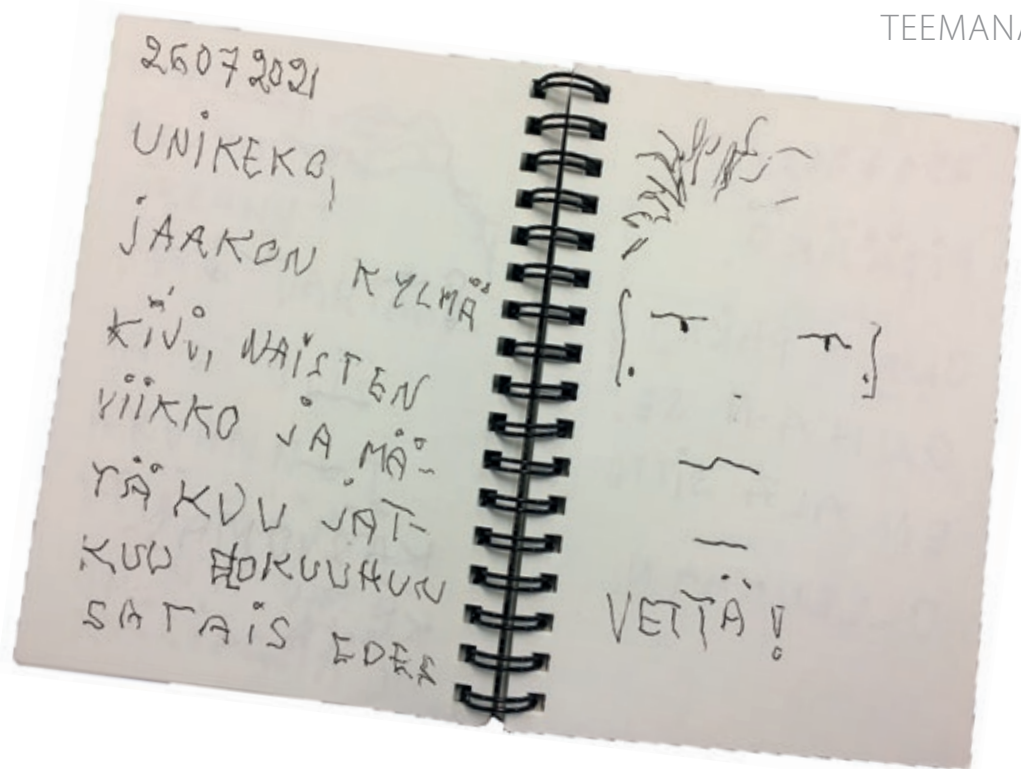 TEEMANA
26072021
UNIKEKO,
JAAKON KYLMÄ
KIVI, NAISTEN
VIIKKO JA MÄ-
TÄKUU JAT-
KUU ELOKUUHUN
SATAIS EDES
VETTÄ!